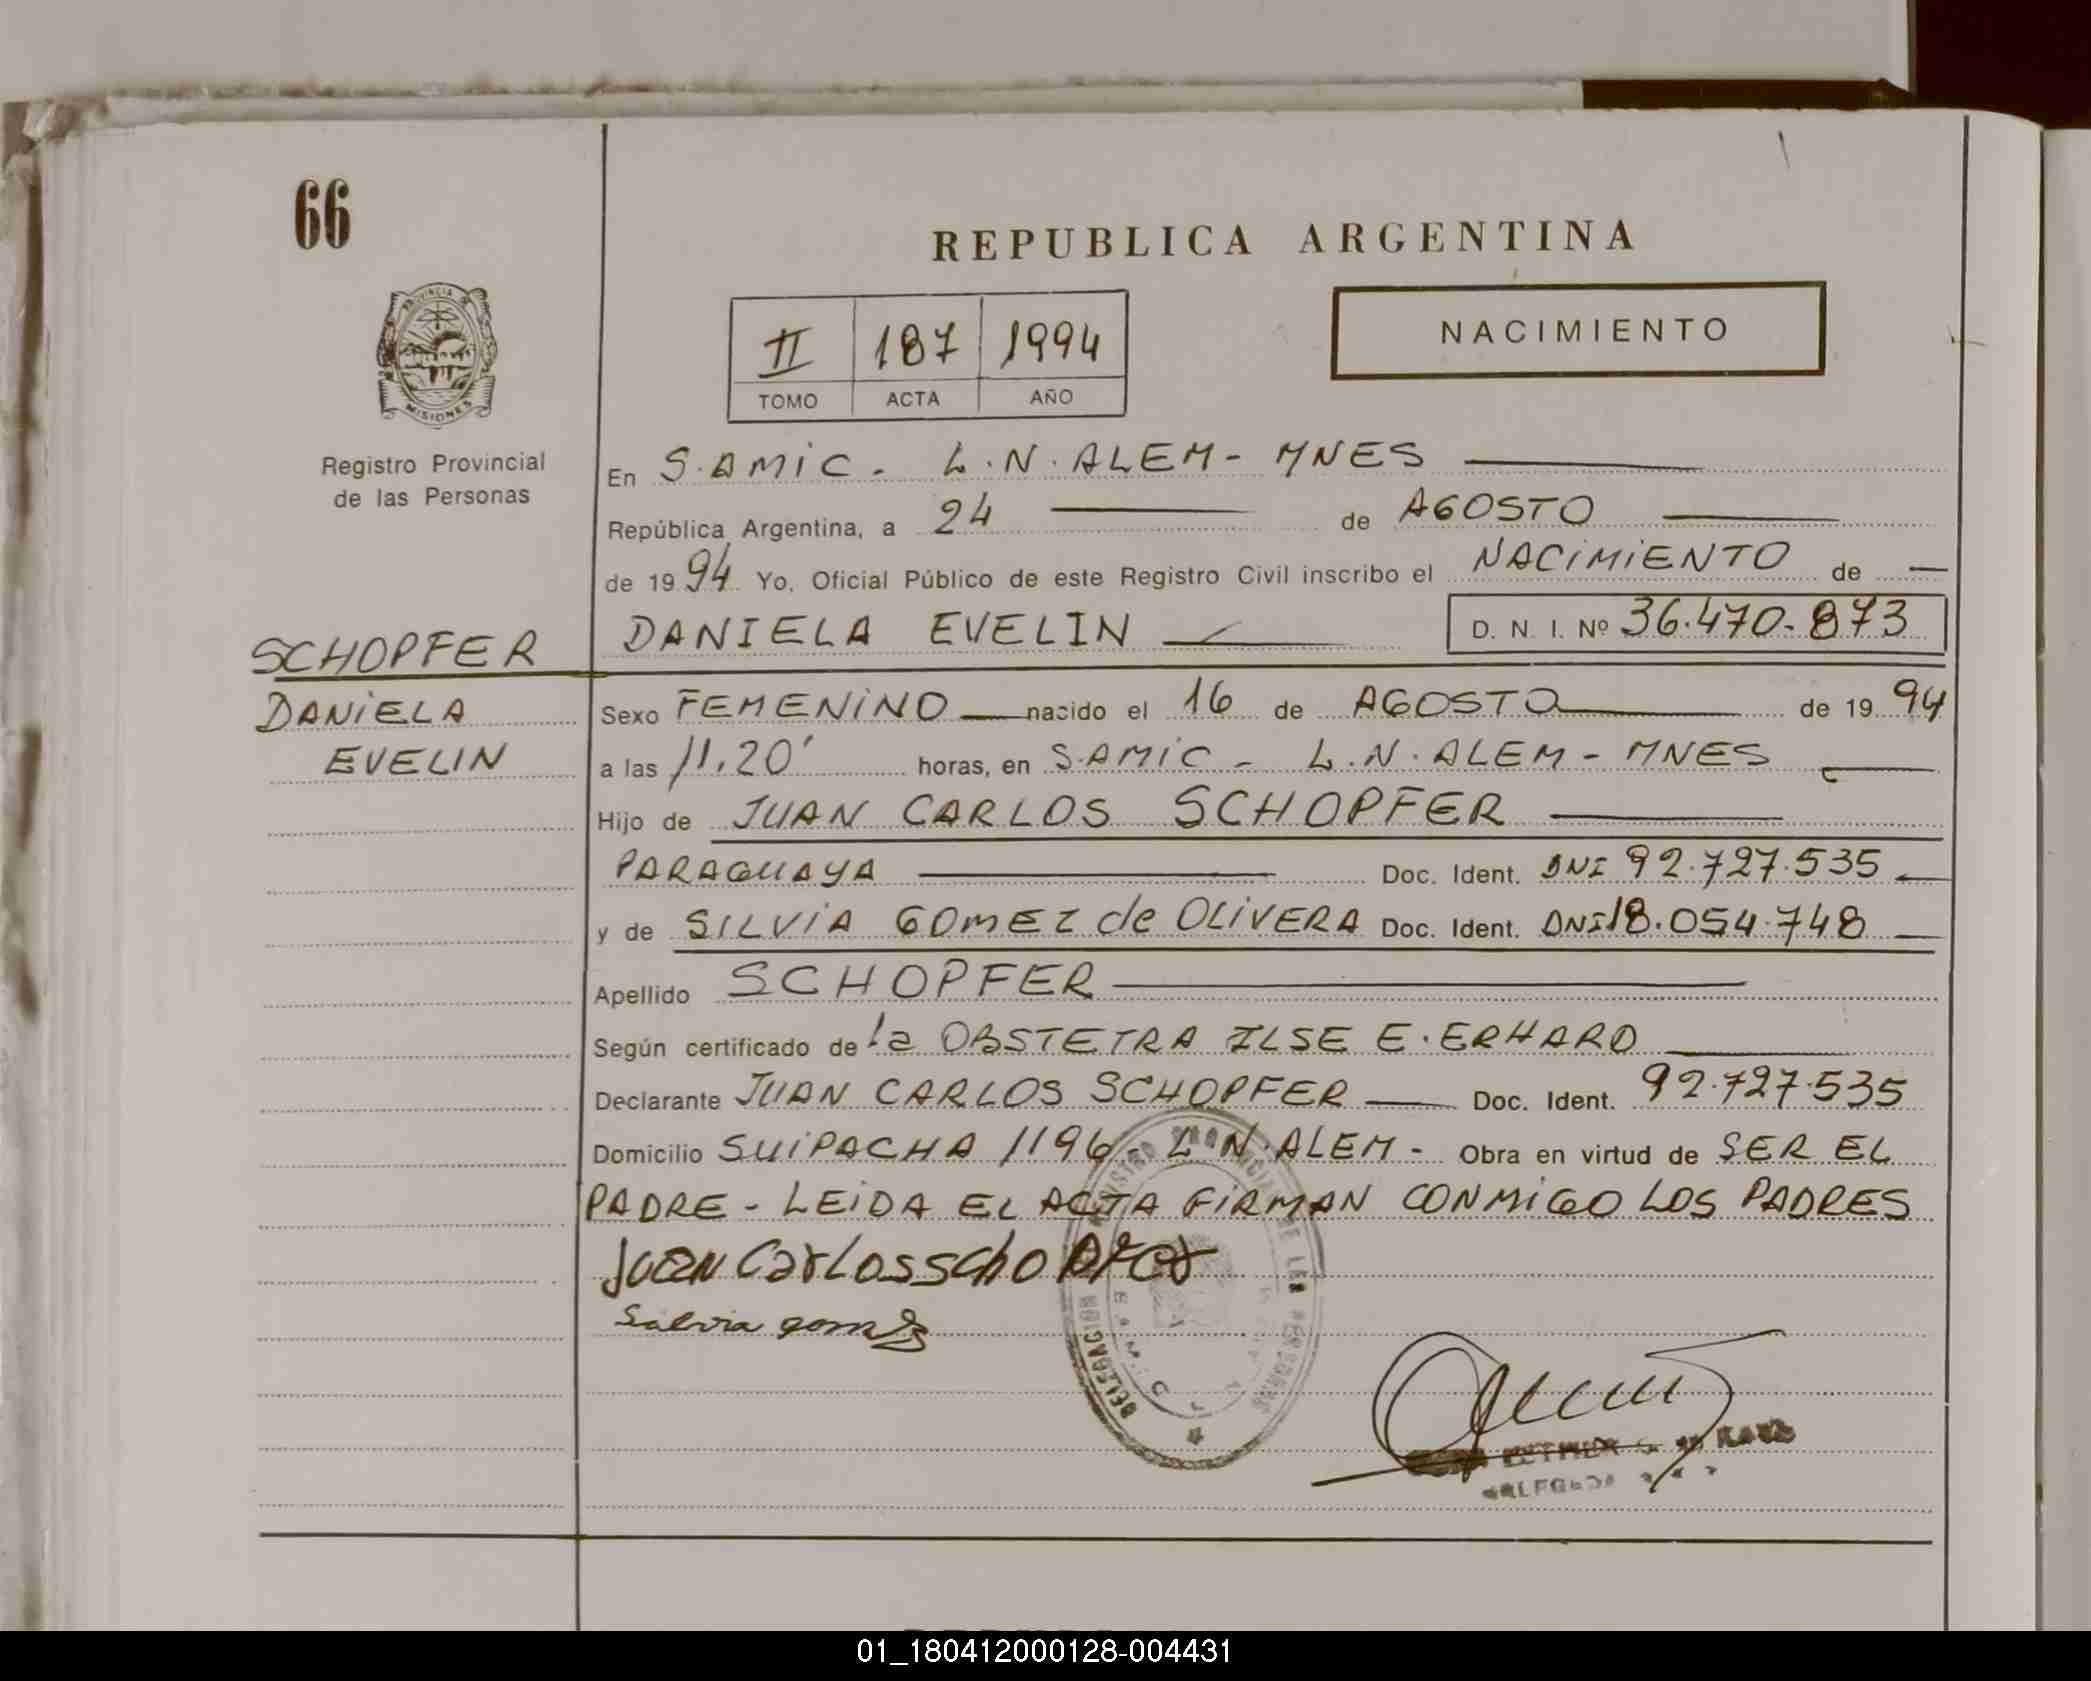 66
REPUBLICA ARGENTINA
II 187 1994
TOMO ACTA AÑO
NACIMIENTO
PROVINCIA DE
MISIONES
Registro Provincial
de las Personas
En S.AMIC. L.N.ALEM - MNES
República Argentina, a 24 de AGOSTO
de 1994 Yo, Oficial Público de este Registro Civil inscribo el NACIMIENTO de
DANIELA EVELIN D. N. I. Nº 36.470.873
SCHOPFER
DANIELA
EVELIN
Sexo FEMENINO nacido el 16 de AGOSTO de 1994
a las 11.20' horas, en S.AMIC - L.N.ALEM - MNES
Hijo de JUAN CARLOS SCHOPFER
PARAGUAYA Doc. Ident. DNI 92.727.535
y de SILVIA GOMEZ de OLIVERA Doc. Ident. DNI 18.054.748
Apellido SCHOPFER
Según certificado de la OBSTETRA ILSE E. ERHARD
Declarante JUAN CARLOS SCHOPFER Doc. Ident. 92.727.535
Domicilio SUIPACHA 1196 L N.ALEM - Obra en virtud de SER EL
PADRE - LEIDA EL ACTA FIRMAN CONMIGO LOS PADRES
Juan Carlos schopfer
Silvia gomez
REGISTRO PROVINCIAL DE LAS PERSONAS
DELEGACION
DELEGADA
01_180412000128-004431